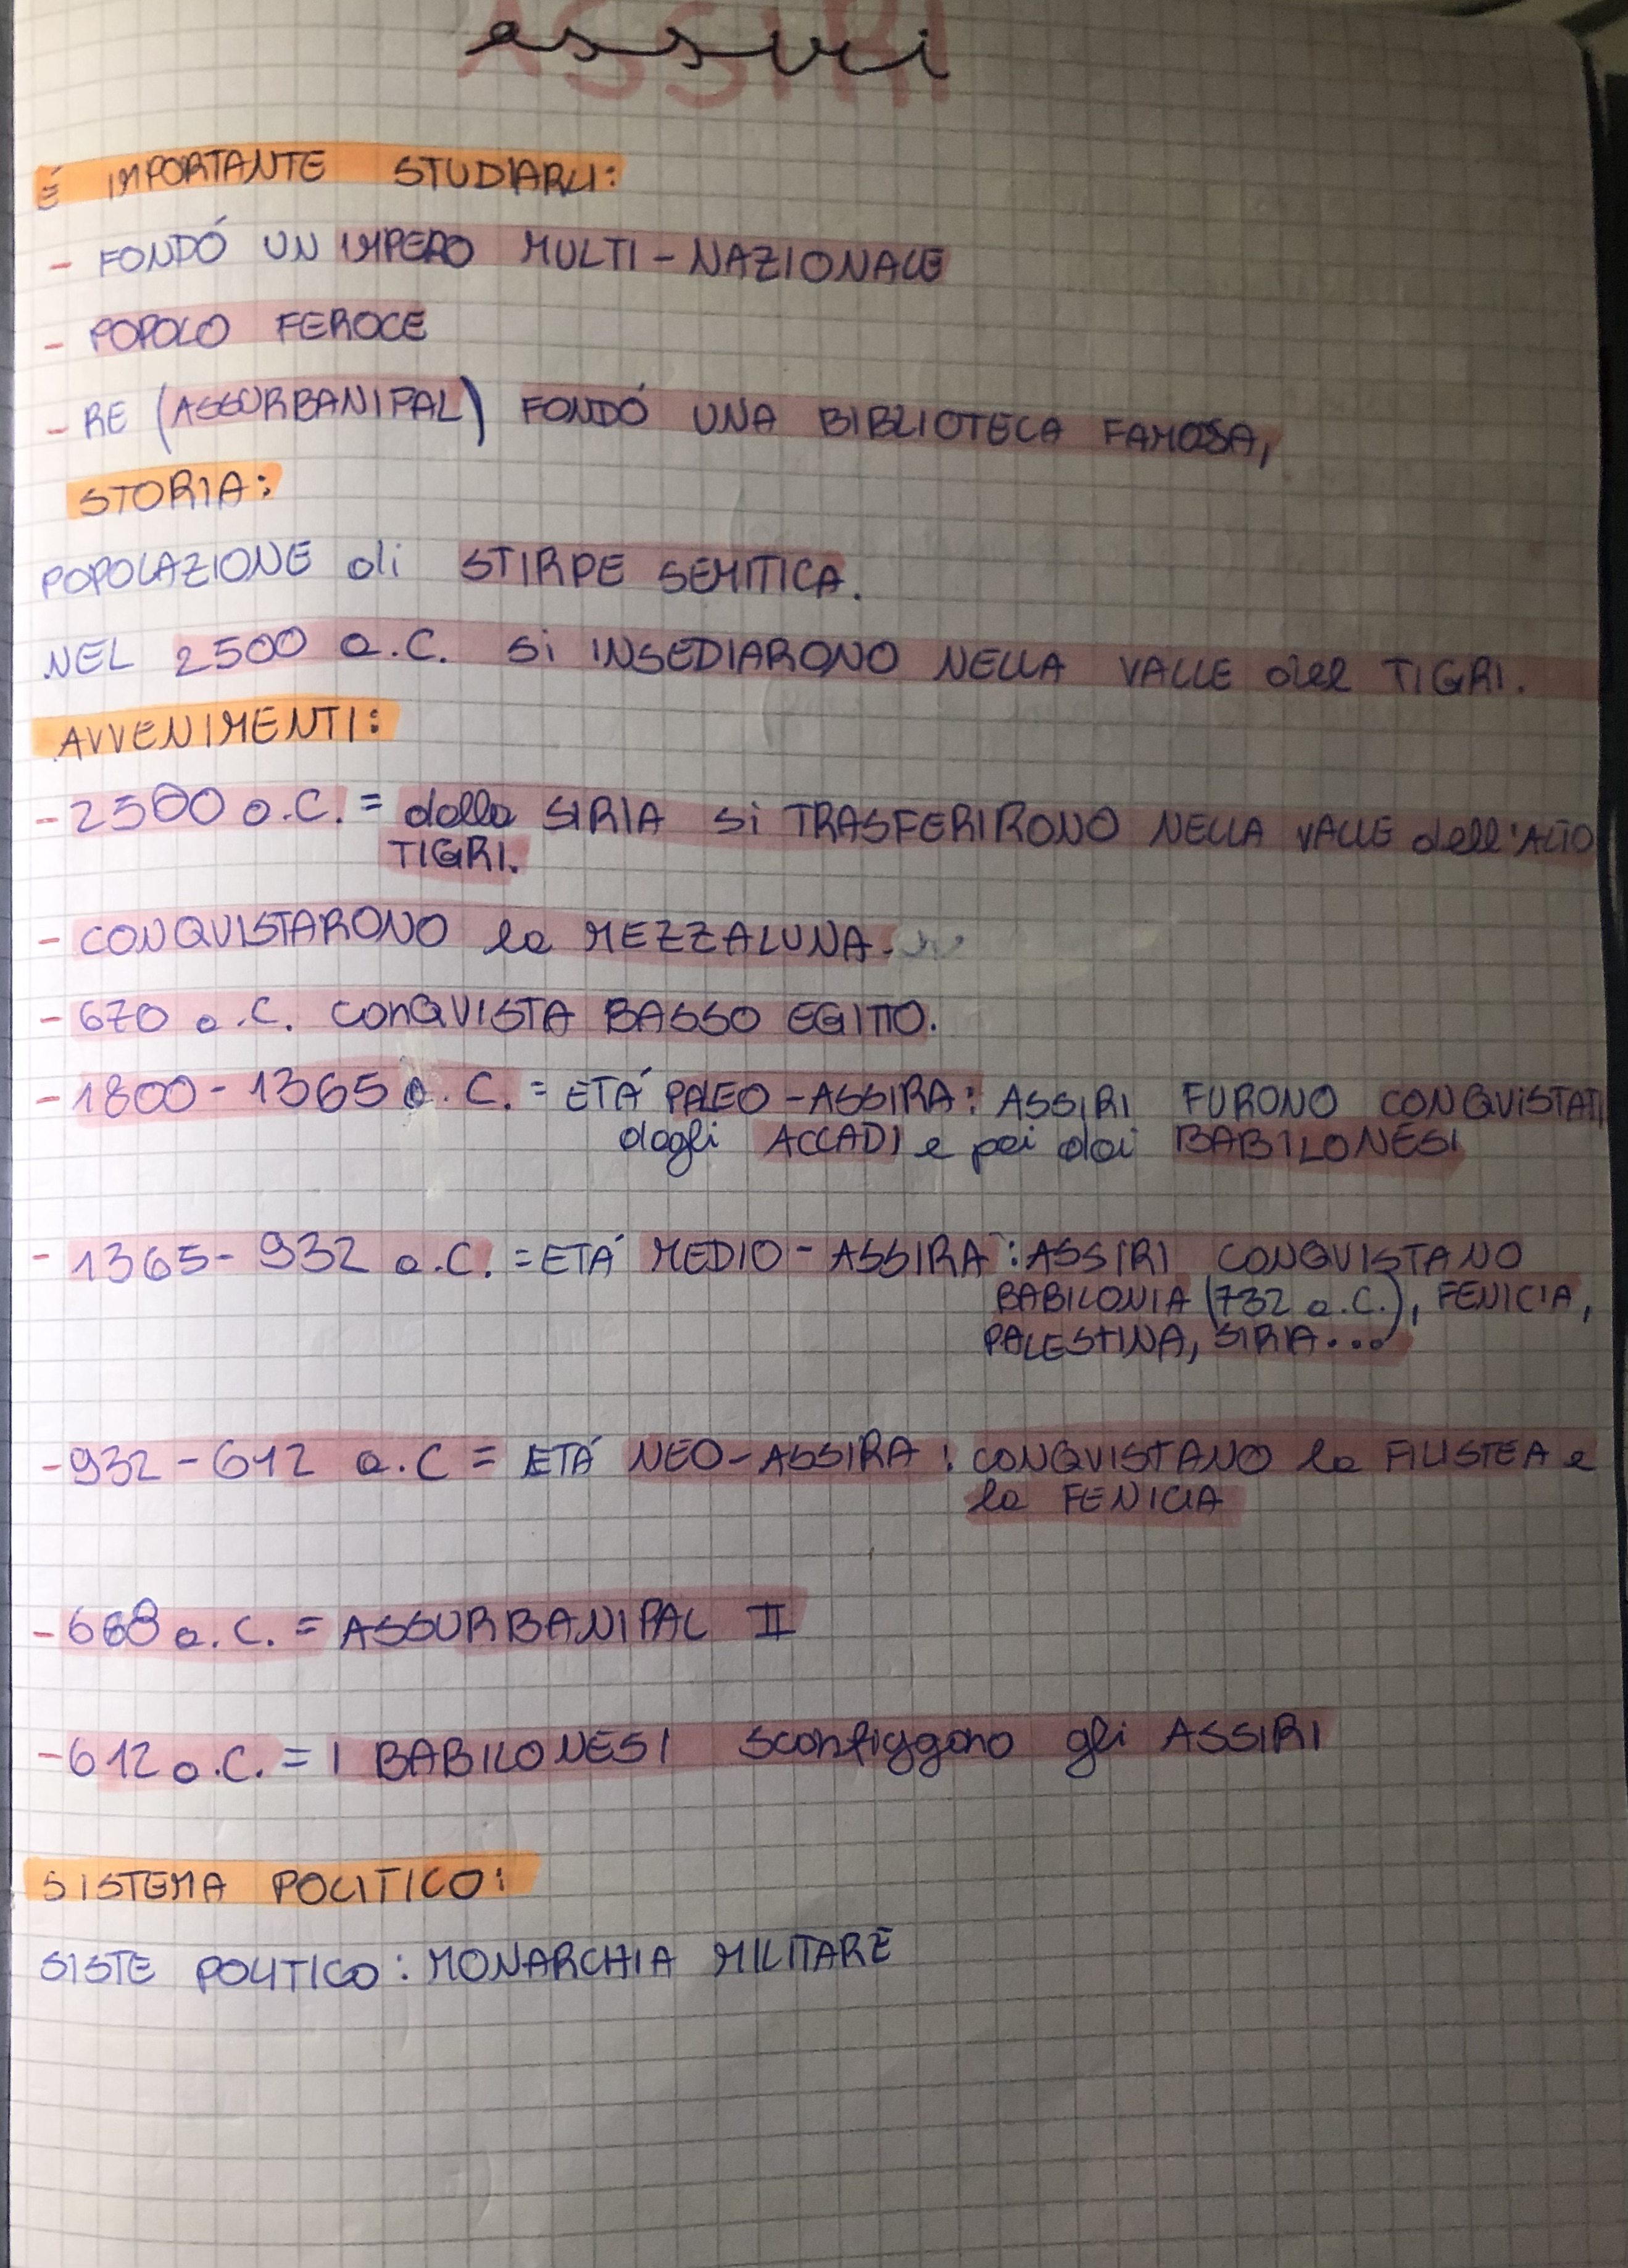 assiri
É IMPORTANTE STUDIARLI:
- FONDÓ UN IMPERO MULTI-NAZIONALE
- POPOLO FEROCE
- RE (ASSURBANIPAL) FONDÓ UNA BIBLIOTECA FAMOSA,
STORIA:
POPOLAZIONE di STIRPE SEMITICA.
NEL 2500 a.C. Si INSEDIARONO NELLA VALLE del TIGRI.
AVVENIMENTI:
- 2500 a.C. = dalla SIRIA Si TRASFERIRONO NELLA VALLE dell'ALTO
TIGRI.
- CONQUISTARONO la MEZZALUNA.
- 670 a.C. CONQUISTA BASSO EGITTO.
- 1800 - 1365 a.C. = ETÁ PALEO-ASSIRA: ASSIRI FURONO CONQUISTATI
dagli ACCADI e poi dai BABILONESI
- 1365 - 932 a.C. = ETÁ MEDIO-ASSIRA: ASSIRI CONQUISTANO
BABILONIA (732 a.C.), FENICIA,
PALESTINA, SIRIA...
- 932 - 612 a.C = ETÁ NEO-ASSIRA: CONQUISTANO la FILISTEA e
la FENICIA
- 668 a.C. = ASSURBANIPAL II
- 612 a.C. = I BABILONESI sconfiggono gli ASSIRI
SISTEMA POLITICO:
SISTE POLITICO: MONARCHIA MILITARE